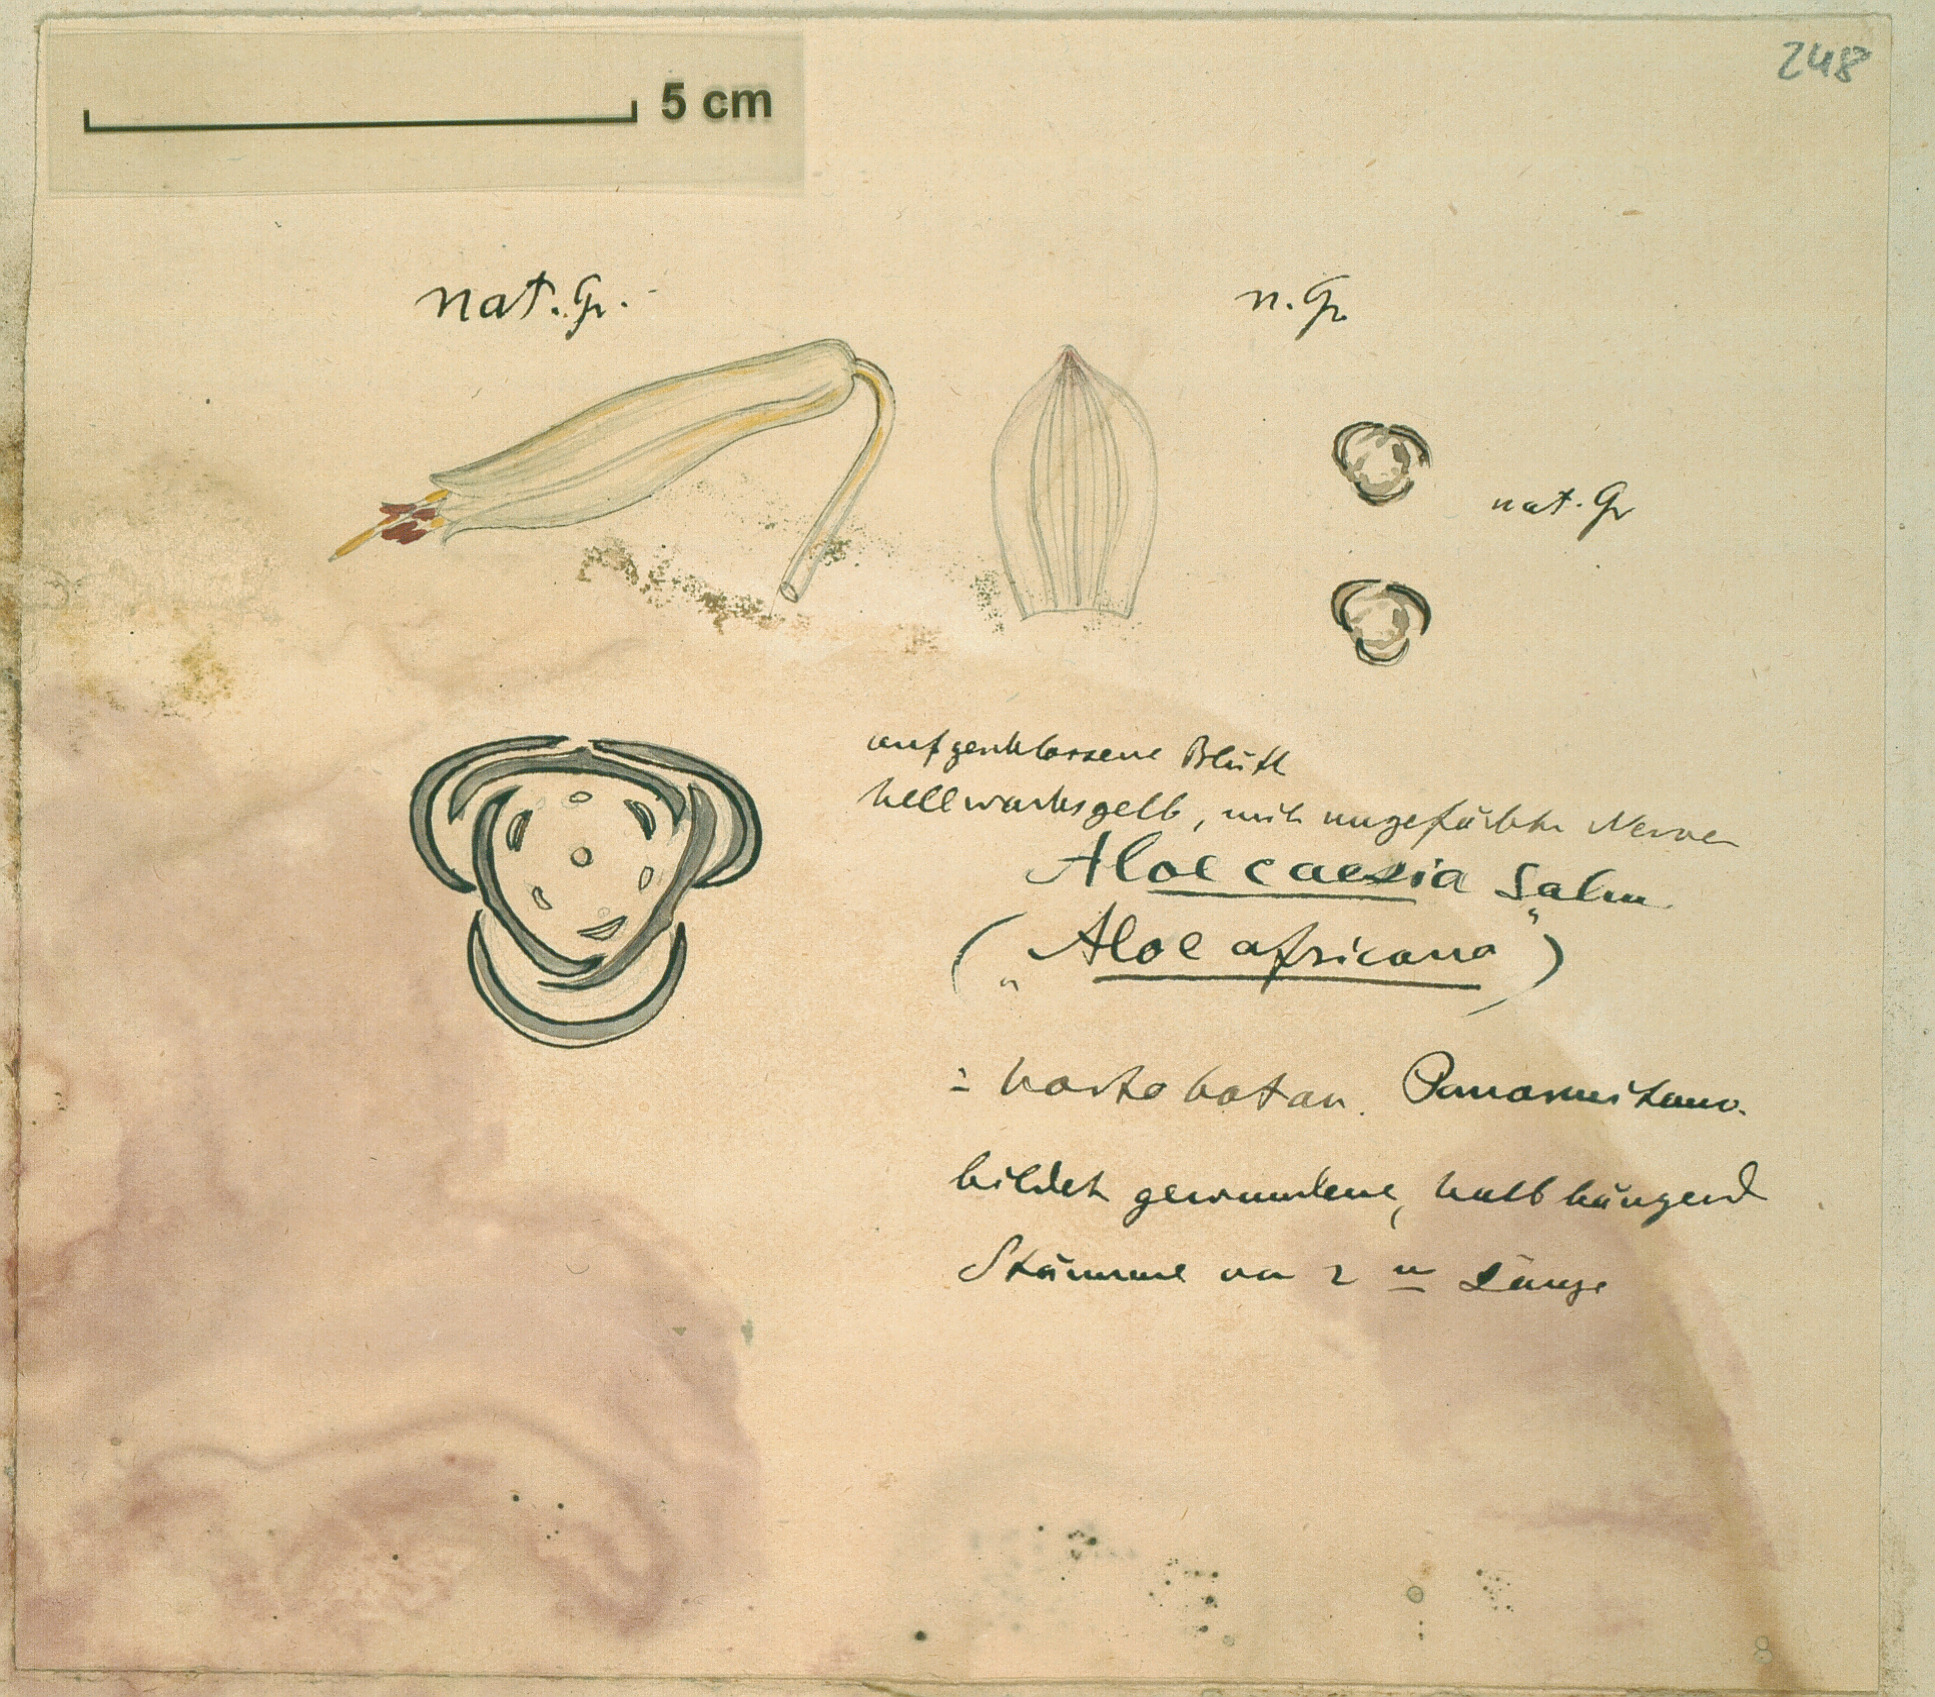 248
5 cm
nat. Gr.
n. Gr.
nat. Gr
aufgeschlossene Blüte
hellwachsgelb, mit ungefärbten Nerven
Aloe caesia Salm
("Aloe africana")
horto botan. Panormitano.
bildet gewundene, halb hängend
Stämme von 2 m Länge
8